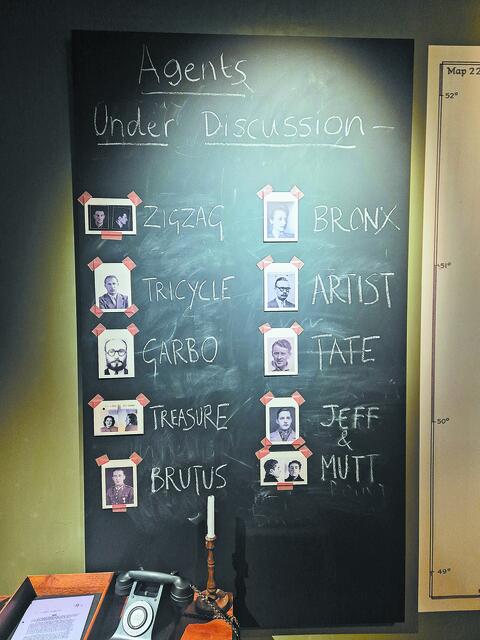 Agents
Under Discussion —
ZIGZAG
TRICYCLE
GARBO
TREASURE
BRUTUS
BRONX
ARTIST
TATE
JEFF
&
MUTT
Map 22
52°
51°
50°
49°